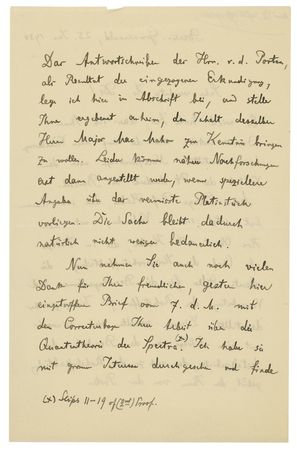 Das Antwortschreiben des Hrn. v. d. Porten,
als Resultat der eingezogenen Erkundigung,
lege ich hier in Abschrift bei, und stelle
Ihnen ergebenst anheim, den Inhalt desselben
Herrn Major Mac Mahon zur Kenntnis bringen
zu wollen. Leider können nähere Nachforschungen
erst dann angestellt werden, wenn speziellere
Angaben über das vermisste Platinstück
vorliegen. Die Sache bleibt dadurch
natürlich nicht weniger bedauerlich.
Nun nehmen Sie auch noch vielen
Dank für Ihren freundlichen, gestern hier
eingetroffenen Brief vom 7. d. M. mit
den Correcturbogen Ihrer Arbeit über die
Quantentheorie der Spectra. (x) Ich habe sie
mit grossem Interesse durchgesehen und finde
(x) Slips 11–19 of (2nd) Proof.